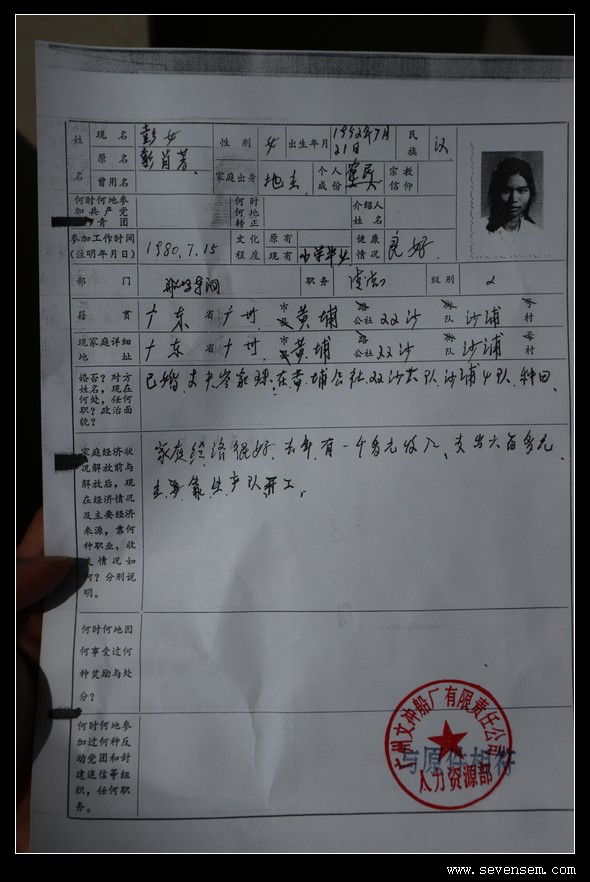 姓名
现名 彭女 性别 女 出生年月 1952年7月21日 民族 汉
原名 彭肖芳
曾用名 家庭出身 地主 个人成份 宗教信仰
何时何地参加共产党 青团 何时何地转正 介绍人姓名
参加工作时间(注明年月日) 1980.7.15 文化程度 原有 现有 小学毕业 健康情况 良好.
部门 职务 级别
籍贯 广东 省 广州 市 黄埔 公社 双沙 队 沙浦 村
现家庭详细地址 广东 省 广州 市 黄埔 公社 双沙 队 沙浦 村
婚否?对方姓名,现在何处,任何职?政治面貌? 已婚.丈夫 在黄埔公社双沙大队沙浦 队.种田.
家庭经济状况解放前与解放后,现在经济情况及主要经济来源,靠何种职业,收 情况如何?分别说明。
家庭经济很好.去年有一千多元收入、支出六百多元.
主要靠生产队开工.
何时何地因何事受过何种奖励与处分?
何时何地参加过何种反动党团和封建迷信等组织,任何职务。
广州文冲船厂有限责任公司
与原件相符
人力资源部
www.sevensem.com